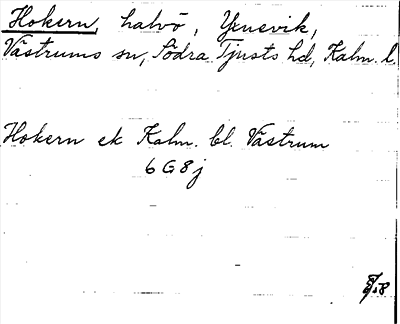 Hokern, halvö, Yxnevik,
Västrums sn, Södra Tjusts hd, Kalm. l.
Hokern ek Kalm. bl. Västrum
6 G 8 j